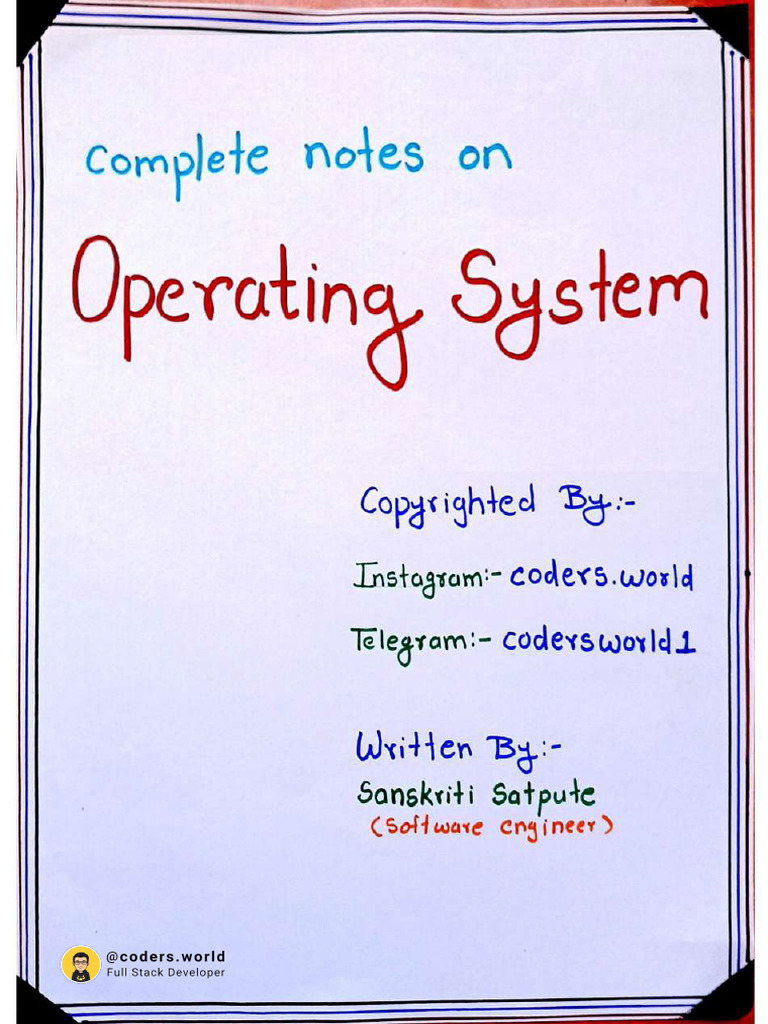 Complete notes on
Operating System
Copyrighted By:-
Instagram:- coders.world
Telegram:- codersworld1
Written By:-
Sanskriti Satpute
(Software engineer)
@coders.world
Full Stack Developer